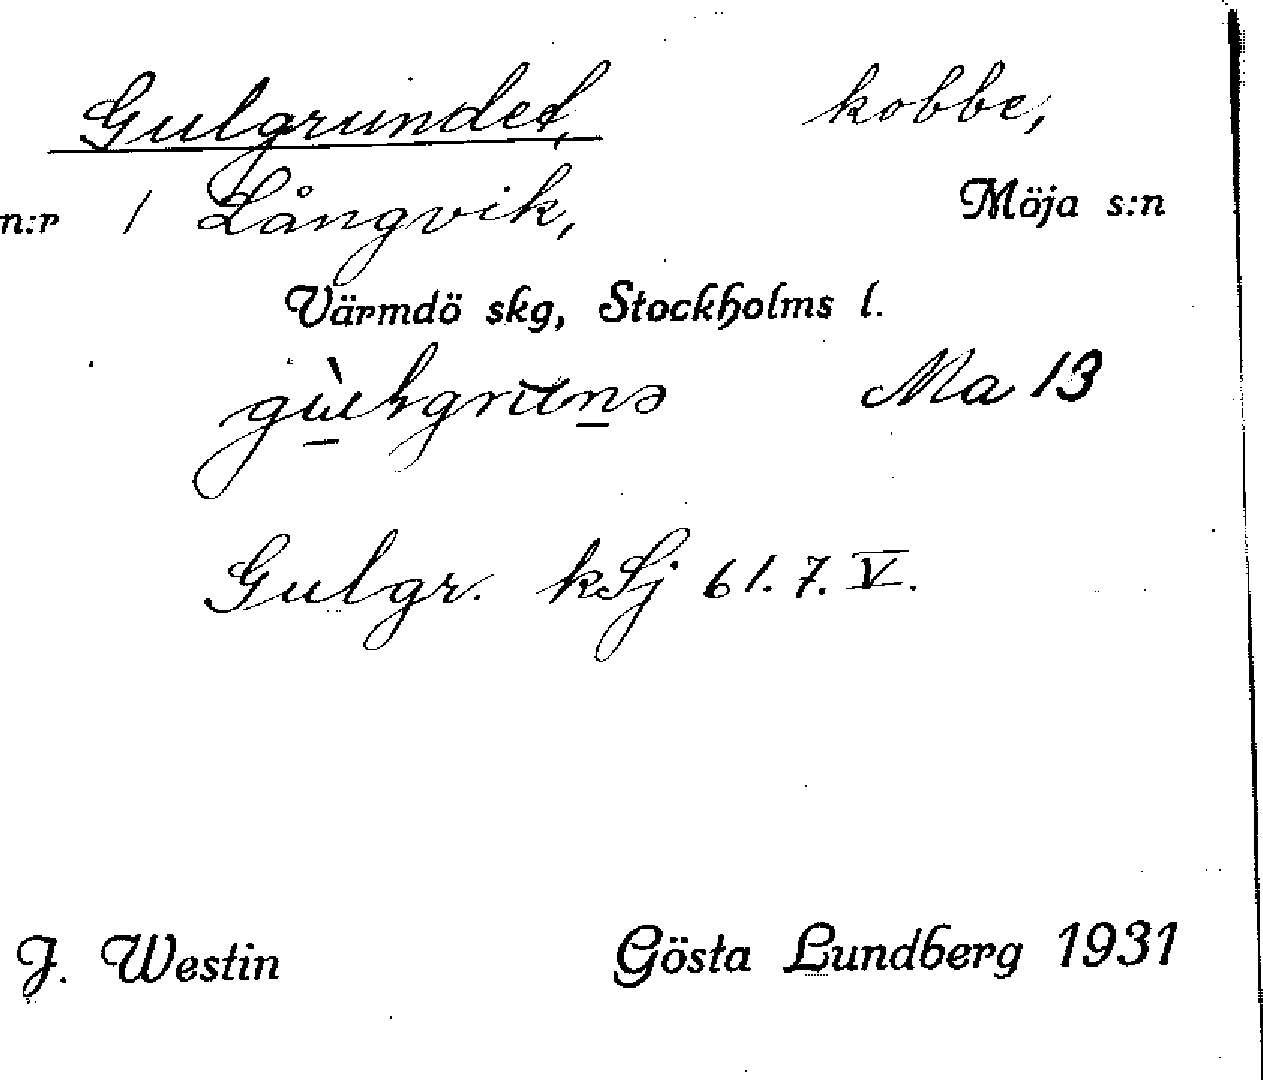 Gulgrundet, kobbe,
n:r 1 Långvik, Möja s:n
Värmdö skg, Stockholms l.
Ma 13
Gulgr. kSj 61. 7. V.
J. Westin Gösta Lundberg 1931